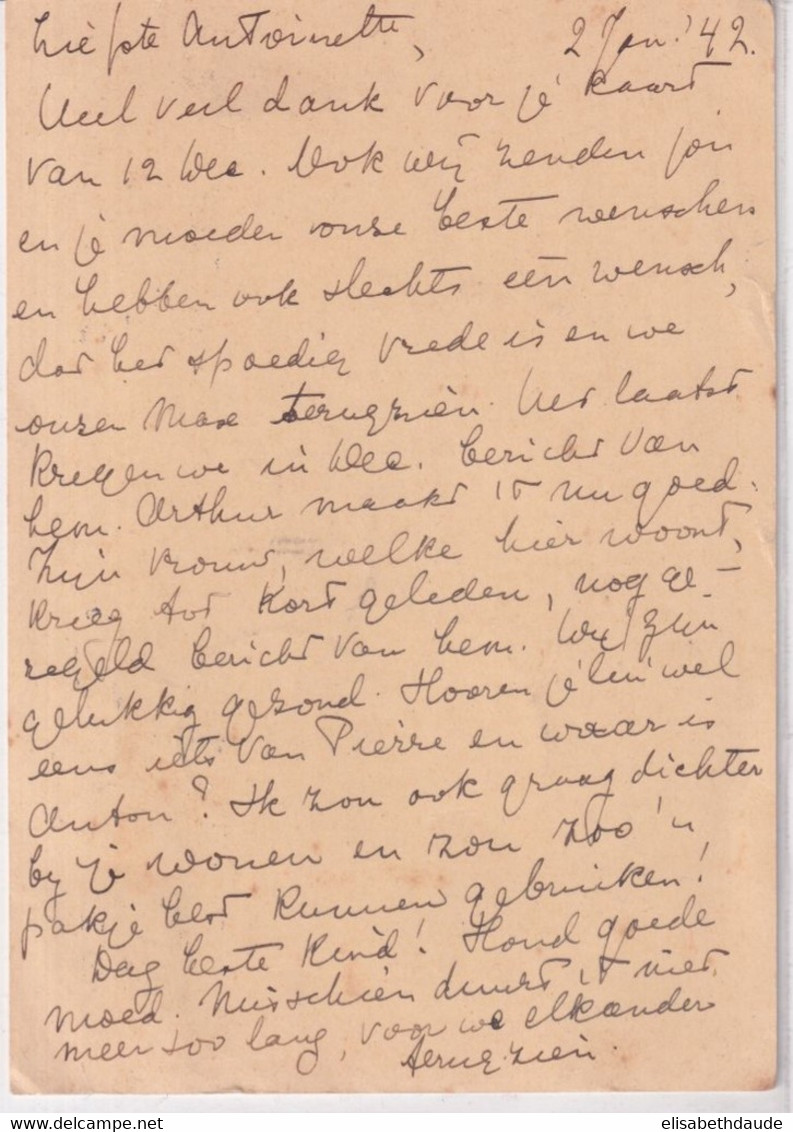 Liefste Antoinette, 2 Jan. '42.
Veel veel dank voor je kaart
van 12 Dec. Ook wij zenden jou
en je moeder onze beste wenschen
en hebben ook slechts één wensch,
dat het spoedig vrede is en we
onzen Max terugzien. Het laatst
kregen we in Dec. bericht van
hem. Arthur maakt 't nu goed.
Zijn vrouw, welke hier woont,
kreeg tot kort geleden, nog ge-
regeld bericht van hem. Wij zijn
gelukkig gezond. Hooren jelui wel
eens iets van Pierre en waar is
Anton? Ik zou ook graag dichter
by je wonen en zou zoo'n
pakje best kunnen gebruiken!
Dag beste kind! Houd goede
moed. Misschien duurt 't niet
meer zoo lang, voor we elkander
terugzien.
elisabethdaude